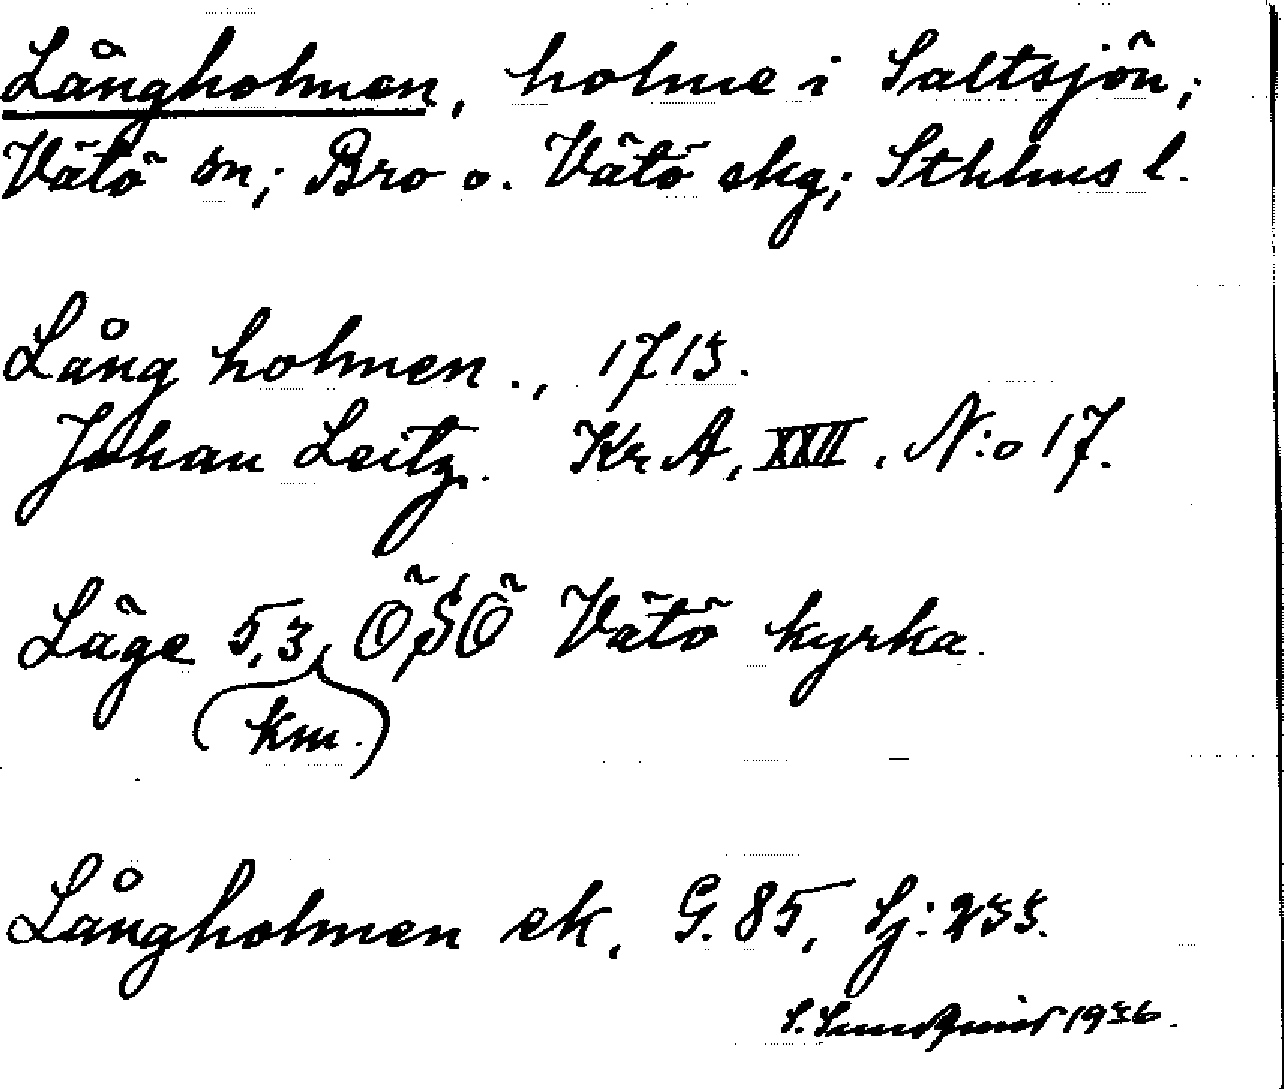 Långholmen, holme i Saltsjön;
Vätö sn; Bro o. Vätö skg; Sthlms l.
Lång holmen., 1715.
Johan Leitz. Kr. A, XXII. N:o 17.
Läge 5,3 ÖSÖ Vätö kyrka.
(km.)
Långholmen ek, G. 85, Sj: 255.
S. Sundqvist 1936.